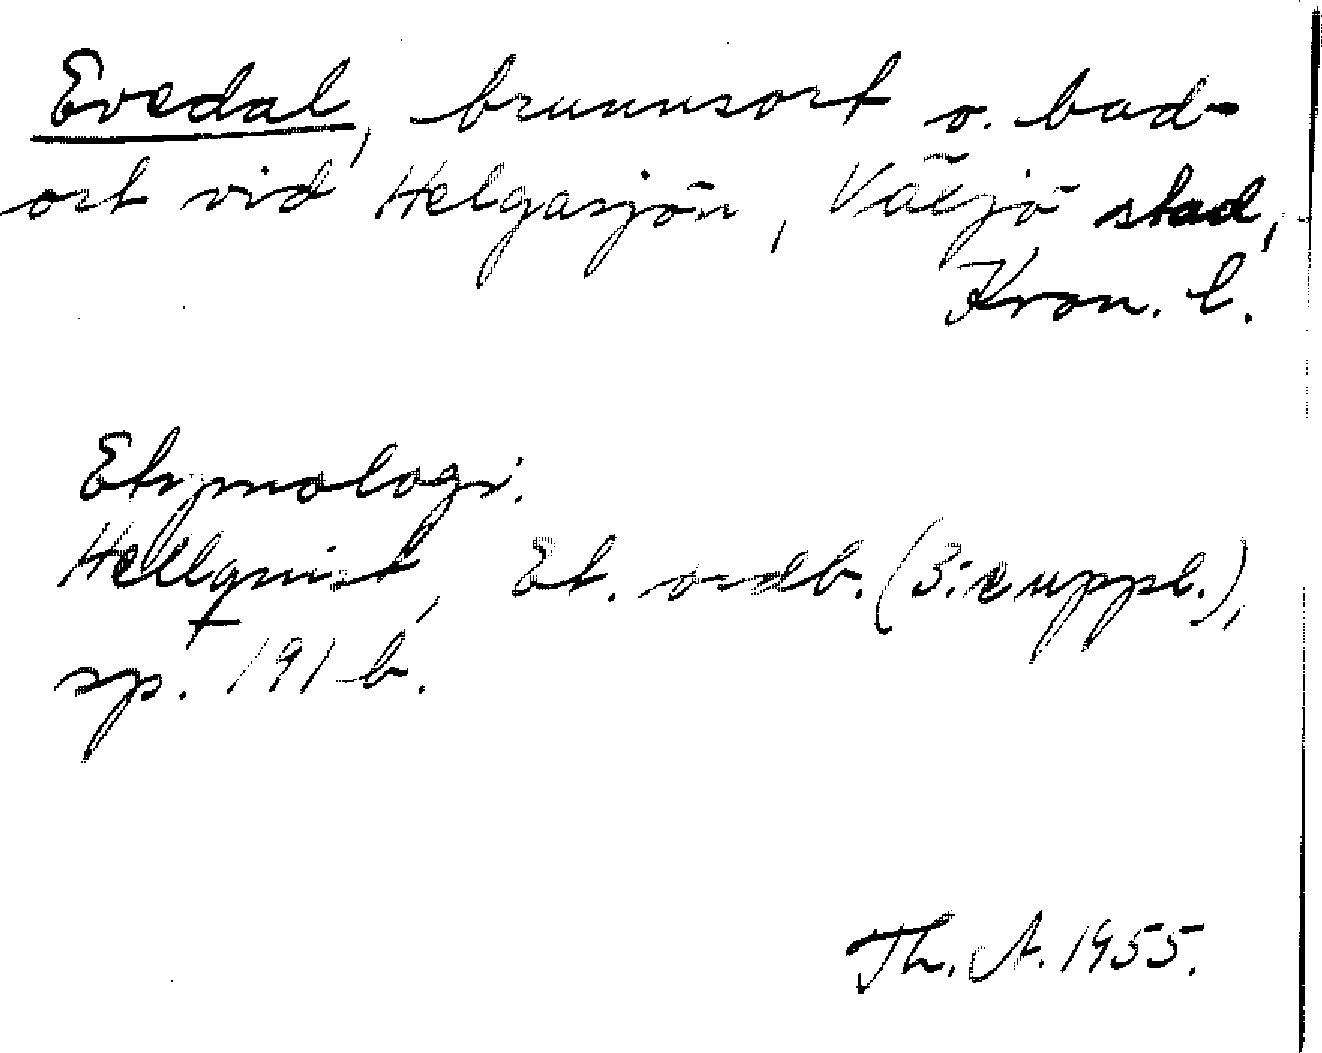 Evedal, brunnsort o. bad-
ort vid Helgasjön, Växjö stad,
Kron. l.
Etymologi.
Hellquist, Et. ordb. (3:e uppl.),
sp. 191 b.
Th. A. 1955.